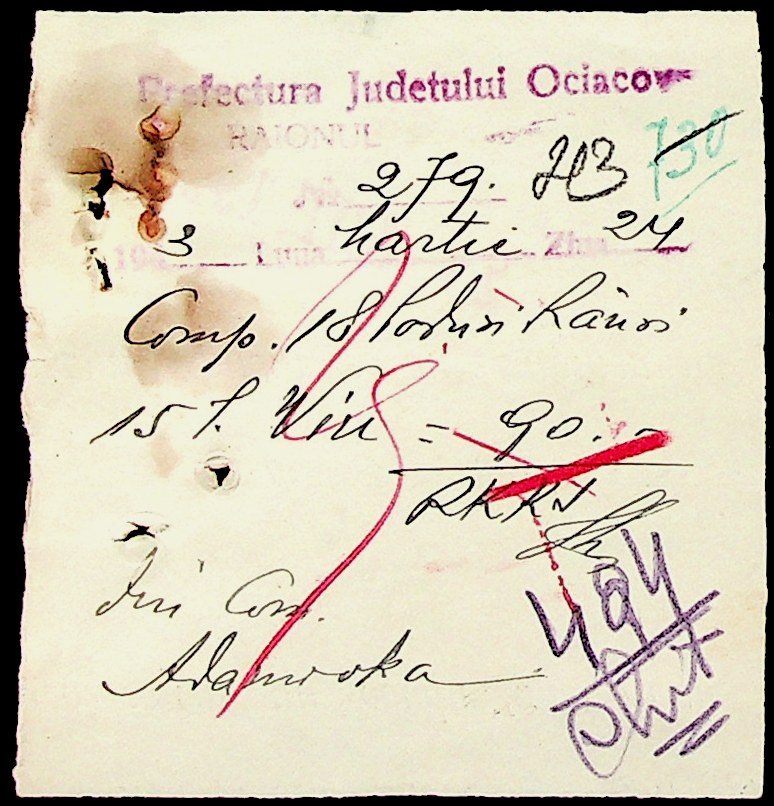 Prefectura Judetului Ociacow
RAIONUL
730
No 279.
194 3 Luna Martie Ziua 24
Comp. 18 Poduri Râuri
15 l. Vin = 90.-
RKKS
din Com.
Adamovka
494